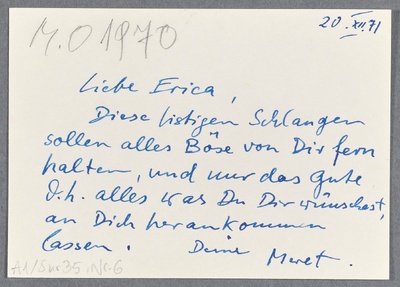 M.O 1970
20.XII.71
Liebe Erica,
Diese listigen Schlangen
sollen alles Böse von Dir fern
halten, und nur das gute
d.h. alles was Du Dir wünschest,
an Dich herankommen
lassen. Deine Meret.
A1/Sur35.Nr.6